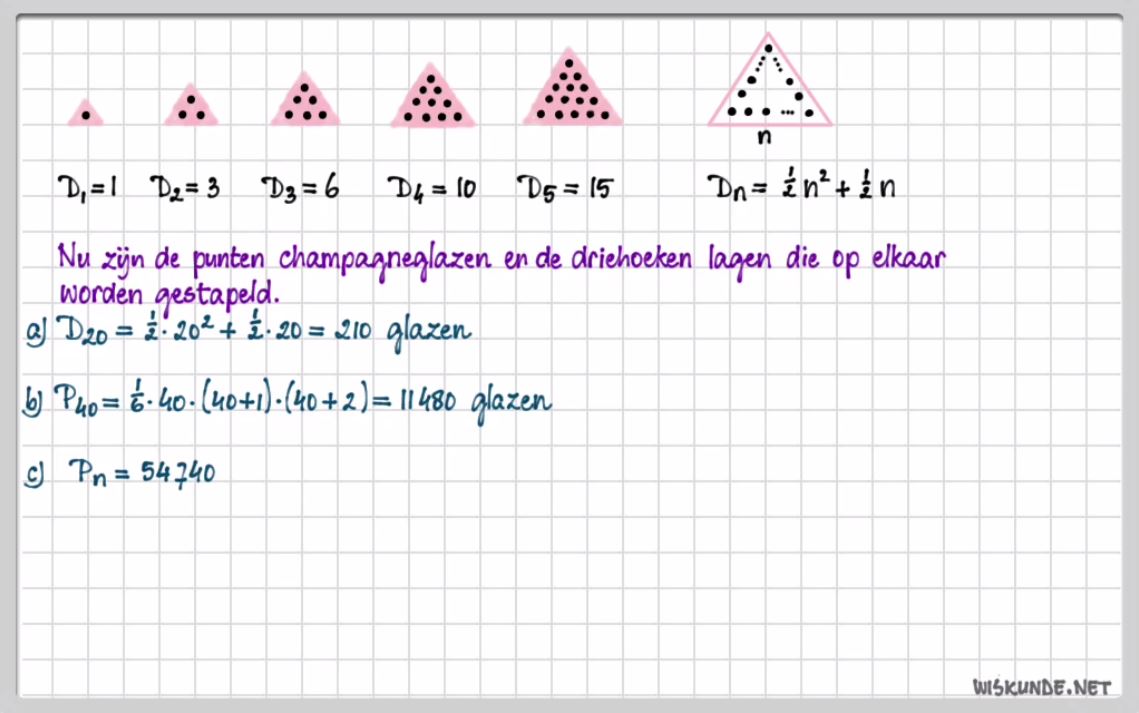 n
D₁ = 1 D₂ = 3 D₃ = 6 D₄ = 10 D₅ = 15 Dₙ = ½ n² + ½ n
Nu zijn de punten champagneglazen en de driehoeken lagen die op elkaar
worden gestapeld.
a) D₂₀ = ½ · 20² + ½ · 20 = 210 glazen
b) P₄₀ = ⅙ · 40 · (40+1) · (40+2) = 11480 glazen
c) Pₙ = 54740
WISKUNDE.NET